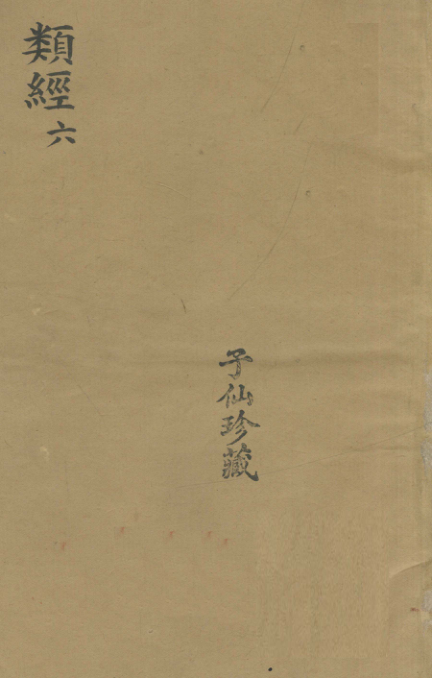 類經 六
子仙珍藏